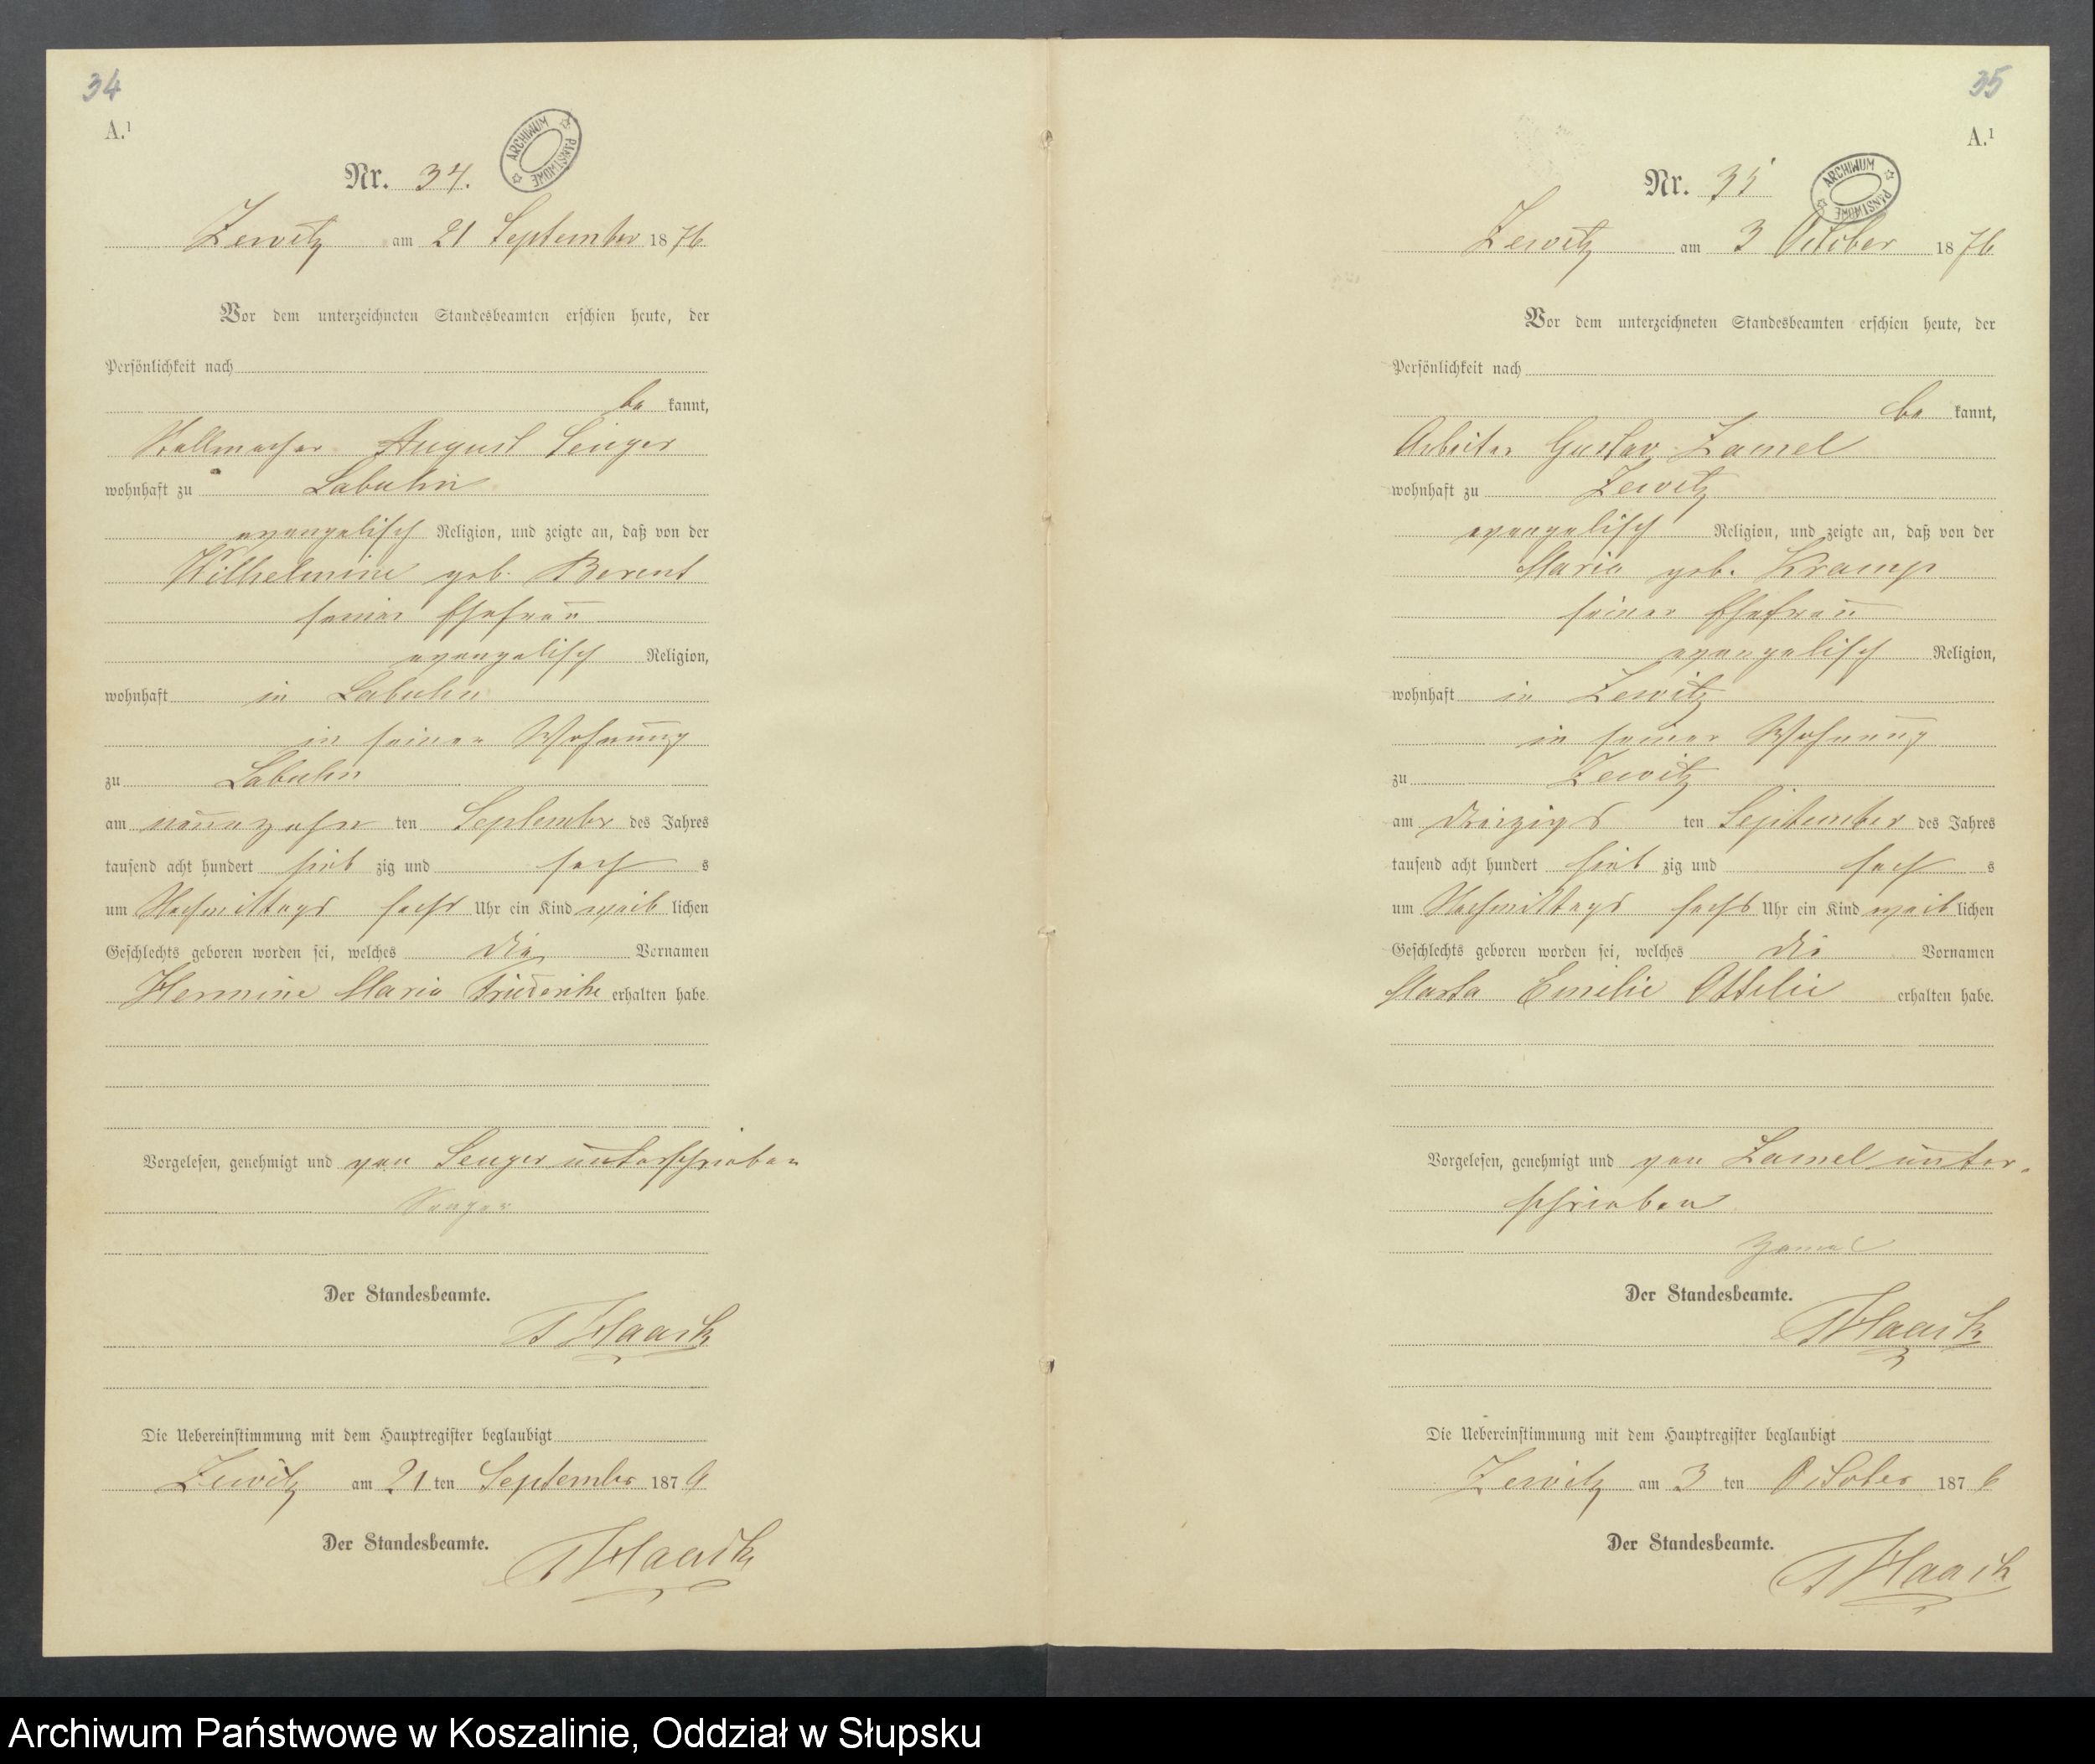 34
A.¹
ARCHIWUM PAŃSTWOWE
Nr. 34.
Zewitz am 21 September 1876
Vor dem unterzeichneten Standesbeamten erschien heute, der
Persönlichkeit nach
be kannt,
Stellmacher August Senger
wohnhaft zu Labuhn
evangelisch Religion, und zeigte an, daß von der
Wilhelmine geb. Berent
seiner Ehefrau
evangelisch Religion,
wohnhaft in Labuhn
in seiner Wohnung
zu Labuhn
am neunzehn ten September des Jahres
tausend acht hundert sieb zig und sech s
um Nachmittags sechs Uhr ein Kind weib lichen
Geschlechts geboren worden sei, welches die Vornamen
Hermine Maria Friederike erhalten habe.
Vorgelesen, genehmigt und von Senger unterschrieben
Senger
Der Standesbeamte.
Haack
Die Uebereinstimmung mit dem Hauptregister beglaubigt
Zewitz am 21 ten September 1876
Der Standesbeamte.
Haack
35
A.¹
ARCHIWUM PAŃSTWOWE
Nr. 35
Zewitz am 3 October 1876
Vor dem unterzeichneten Standesbeamten erschien heute, der
Persönlichkeit nach
be kannt,
Arbeiter Gustav Zamel
wohnhaft zu Zewitz
evangelisch Religion, und zeigte an, daß von der
Maria geb. Kramp
seiner Ehefrau
evangelisch Religion,
wohnhaft in Zewitz
in seiner Wohnung
zu Zewitz
am dreizigs ten September des Jahres
tausend acht hundert sieb zig und sech s
um Nachmittags sechs Uhr ein Kind weib lichen
Geschlechts geboren worden sei, welches die Vornamen
Marta Emilie Ottilie erhalten habe.
Vorgelesen, genehmigt und von Zamel unter-
schrieben
Zamel
Der Standesbeamte.
Haack
Die Uebereinstimmung mit dem Hauptregister beglaubigt
Zewitz am 3 ten October 1876
Der Standesbeamte.
Haack
Archiwum Państwowe w Koszalinie, Oddział w Słupsku